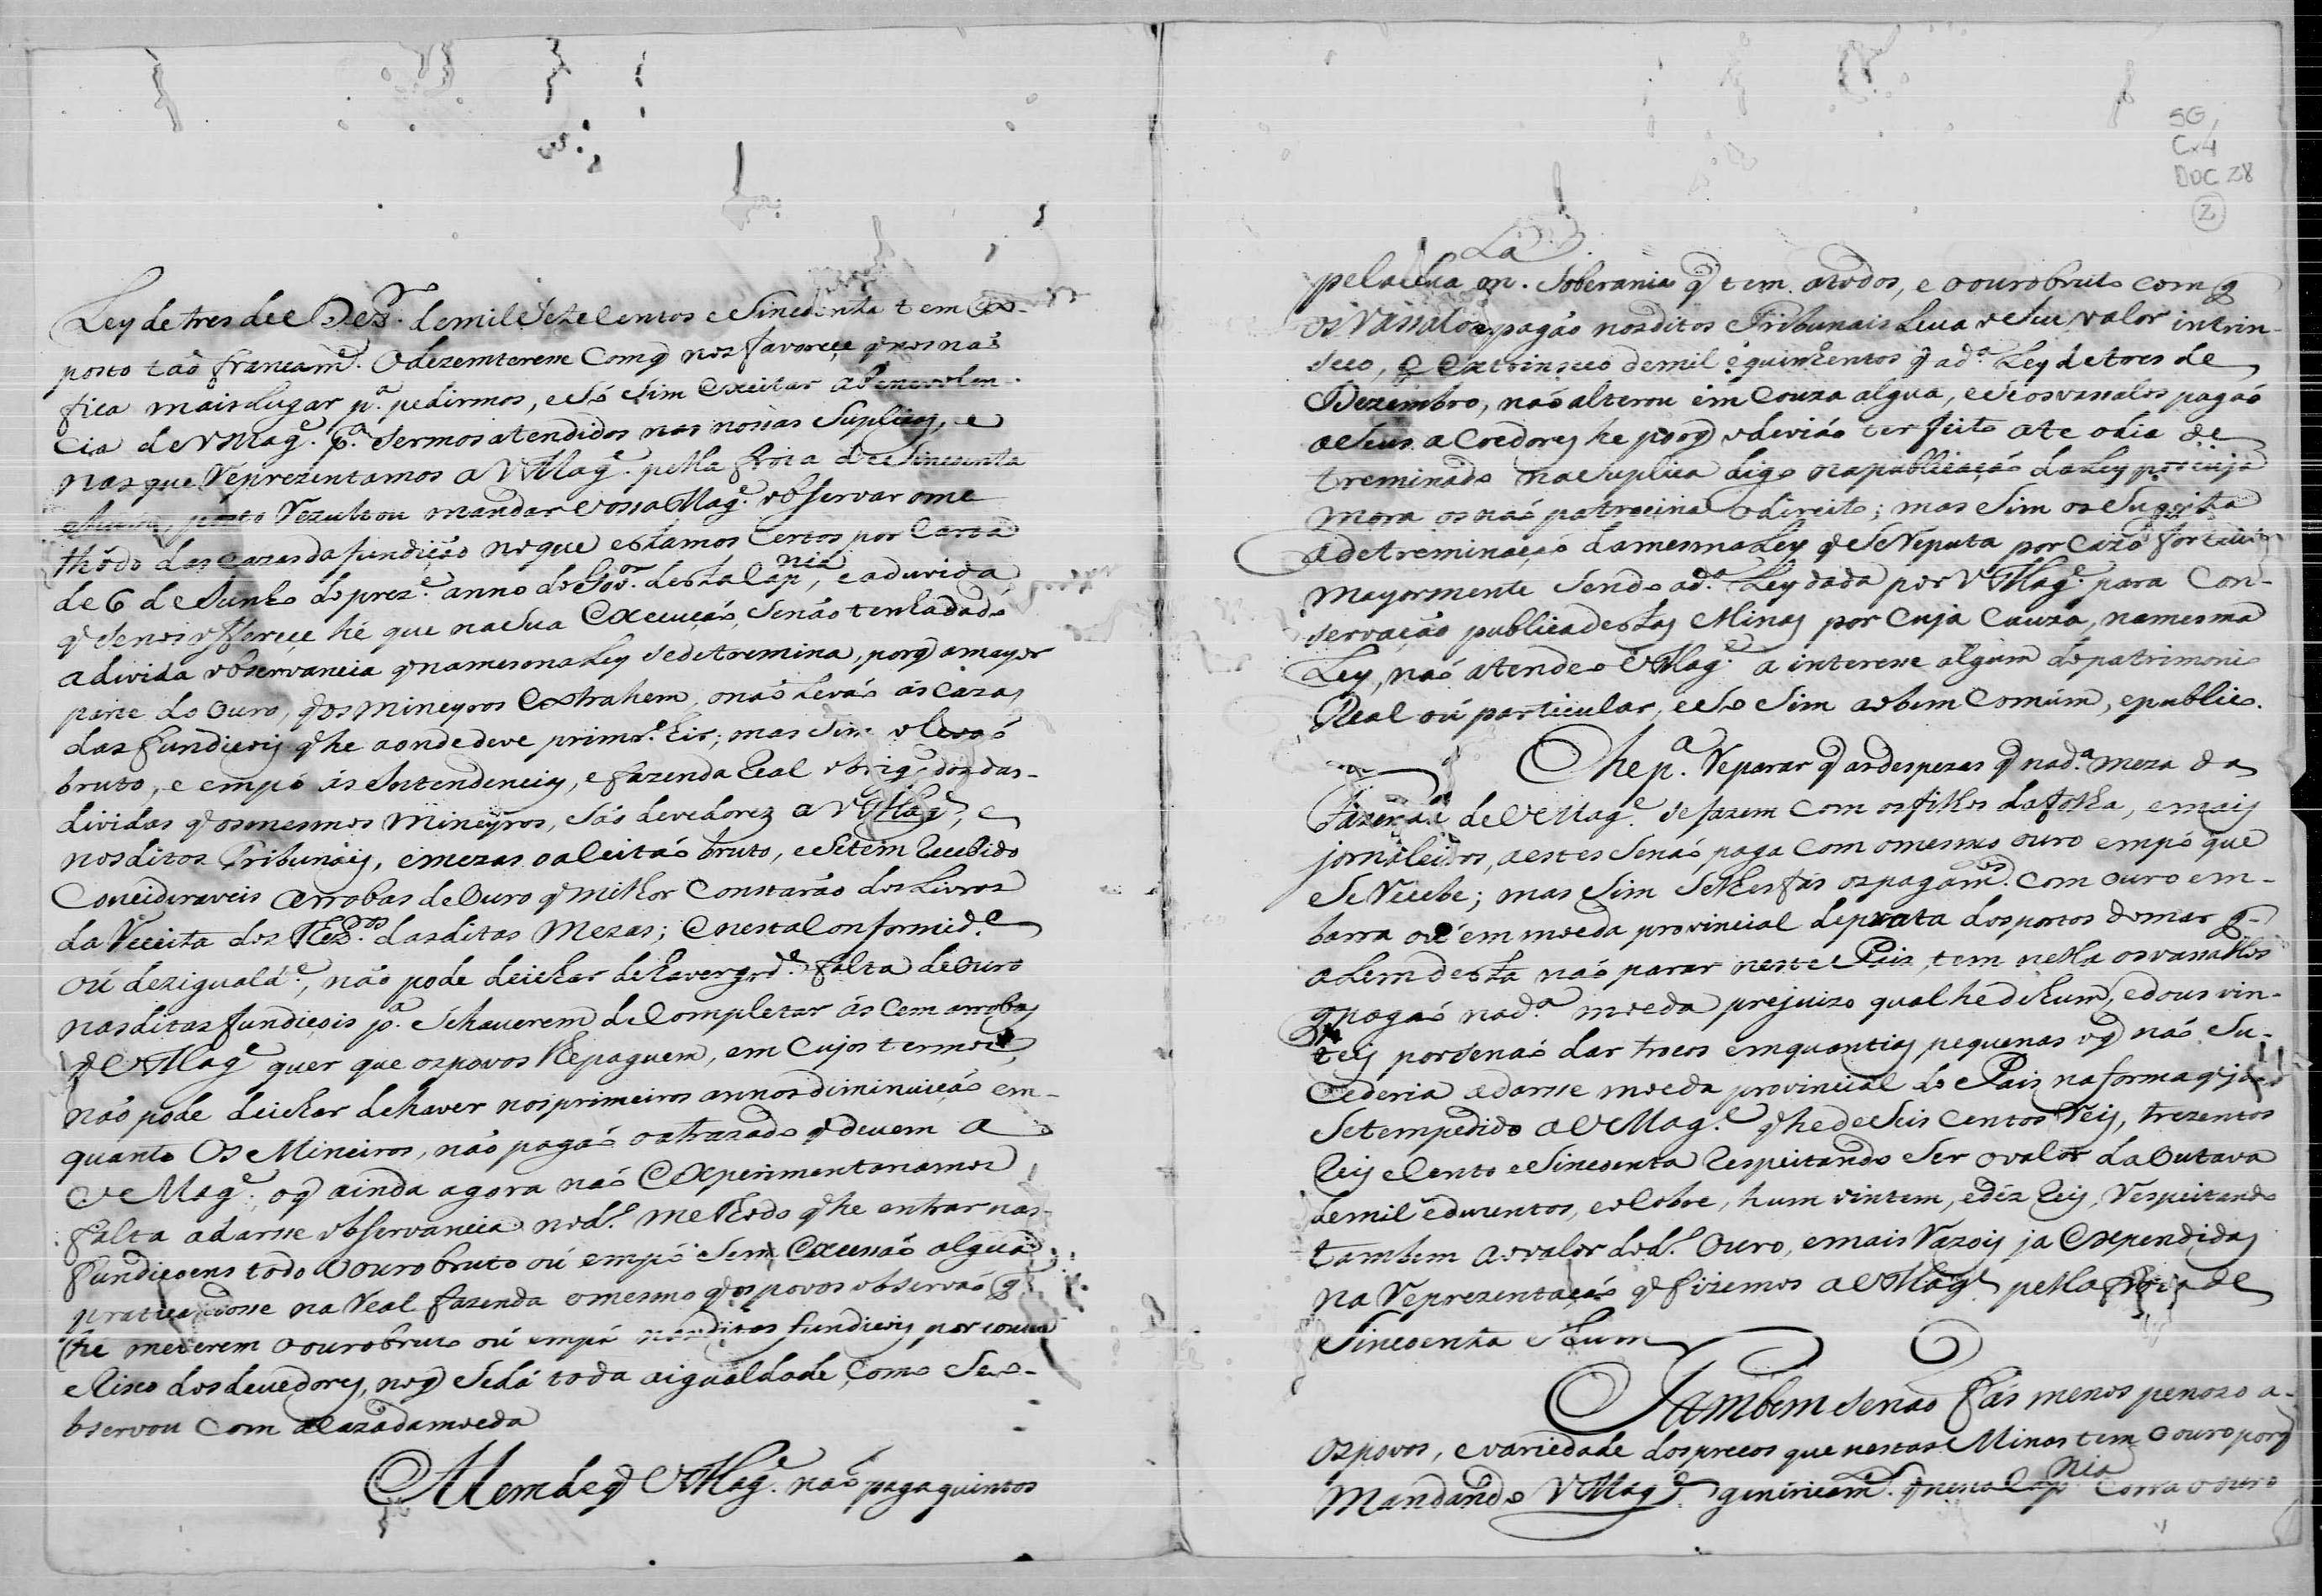 Ley de tres de Dezr.º de mil Sete Centos e Sincoenta tem Ex-
posto taõ francamᵉ. O dezemterese Comq̃ nos favoreçe q̃ nos naõ
fica mais Lugar pª. pedirmos, e Só Sim Exçitar abenevolen-
cia de VMagᵉ. pª. Sermos atendidos nas nossas Suplicas, e
nas que Reprezentamos a VMagᵉ. pella frota de Sincoenta
Rezultou mandar Vossa Magᵉ. observar o me
thódo das Cazas da fundição no que estamos Certos por Carta
de 6 de Junho do prezᵉ. anno do Govᵒʳ. desta Capⁿⁱᵃ, e a duvida
q̃ Se nos offereçe hé que na Sua Execuçaõ, Senão tenha dado
a divida observancia q̃ na mesma Ley se detremina, porq̃ a mayor
parte do Ouro, q̃ os mineyros Extrahem, o naõ Levaõ ás Cazas
das fundiçois q̃ he aonde deve primrº. hir; mas Sim o Levaõ
bruto, e empó ás Intendencias, e fazenda Real obrigᵈos das
dividas q̃ os mesmos Mineyros, Saõ devedores a VMagᵉ, e
nos ditos Tribunáis, e mezas o aceitaõ bruto, e Setem Recebido
Concideraveis arrobas de Ouro q̃ milhor Constarão dos Livros
da Reçeita dos Thezʳᵒˢ das ditas Mezas; E nesta Conformidᵉ
oú dezigualdᵉ, não pode deichar de haver grdᵉ. falta de Ouro
nas ditas fundiçois pª. Se haverem de Completar ás Cem arrobas
q̃ VMagᵉ quer que os povos lhe paguem, em Cujos termos,
naõ pode deichar de haver nos primeiros annos diminuiçaõ em-
quanto Os Mineiros, não pagaõ o atrazado q̃ devem a
VMagᵉ. oq̃ ainda agora naõ Experimentariamos
falta a darsse observancia no dº. Methodo q̃ he entrar nas
fundiçoens todo O ouro bruto oú empó Sem Excessaõ algua
praticandosse na Real fazenda o mesmo q̃ os povos observaõ q̃
he meterem o ouro bruto oú empó nas ditas fundiçois por conta
e Risco dos devedores, noq̃ Se dá toda a igualdade, Como Se o-
bservou Com a Caza da moeda
Alem de q̃ VMagᵉ. naõ paga quintos
SG
Cx 4
DOC 28
2
pela Sua Soberania q̃ tem atodos, e o ouro bruto com q̃
os Vassalos pagão nos ditos Tribunais Leva o Seu valor intrin-
seco, e Extrinseco de mil e quinhentos q̃ adª. Ley de tres de
Dezembro, naõ alterou em Couza algua, e Se os vassalos pagaõ
a Seus a Credores he porq̃ o diviáo ter feito ate o dia de
treminado na Suplica digo na publicaçaõ da Ley por cuja
mora os naõ patrocina o direito; mas Sim os Sugeita
a detreminaçaõ da mesma Ley q̃ Se Reputa por Cazo fortuito
mayormente Sendo adª. Ley dada por VMagᵉ. para Con-
servação publica destas Minas por Cuja Cauza, na mesma
Ley, naõ atendeo VMagᵉ. a interesse algum do patrimonio
Real oú particular, e Só Sim ao bem Comúm, e publico.
E he pª. Reparar q̃ as despezas q̃ na dª. meza da
Fazenda de VMagᵉ. se fazem Com os filhos da folha, e mais
jornaleiros, a estes Senaõ paga Com o mesmo ouro empó que
Se Recebe; mas Sim Selhes fás os pagamᵗᵒˢ. Com ouro em-
barra oú em moeda provincial de prata dos portos do mar q̃
alem desta naõ parar neste Paiz, tem nella os vassallos
q̃ pagaõ na dª. moeda prejuizo qual he de hum, e dous vin-
teis por Senaõ dar trocos em quantias pequenas oq̃ naõ Su-
cederia a darsse moeda provincial do Paiz na forma q̃ já
Se tem pedido a VMagᵉ. q̃ he de Seis Centos Reis, trezentos
Reis e Cento e Sincoenta Respeitando Ser o valor da Outava
de mil e duzentos, e o Cobre, hum vintem, e déz Reis, Respeitando
tambem ao valor do dº. Ouro, e mais Razois ja Expendidas
na Reprezentaçaõ q̃ fizemos a VMagᵉ pella frota de
Sincoenta e hum
Tambem Senaõ fás menos penozo a-
os povos, e variedade dos precos que nestas Minas tem o ouro porq̃
Mandando VMagᵉ genericamᵉ. q̃ nesta Capⁿⁱᵃ Corra o ouro